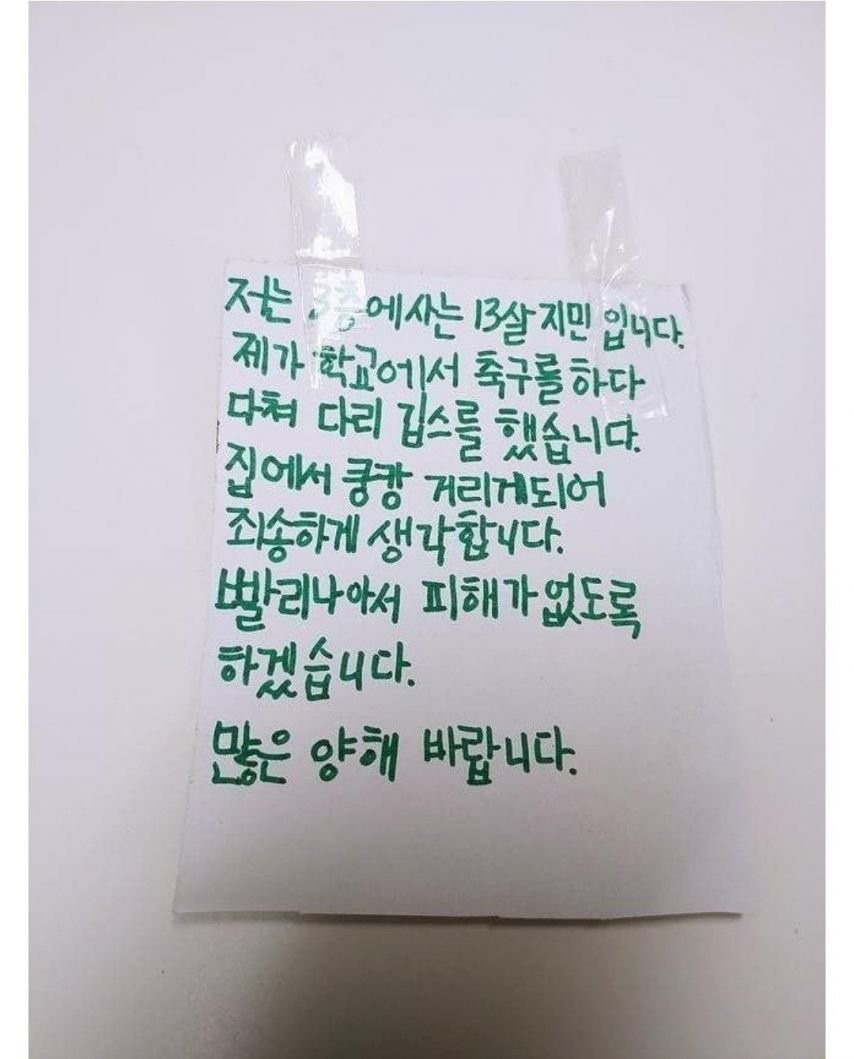 저는 3층에사는 13살 지민 입니다.
제가 학교에서 축구를 하다
다쳐 다리 깁스를 했습니다.
집에서 쿵캉 거리게되어
죄송하게 생각합니다.
빨리나아서 피해가없도록
하겠습니다.
많은 양해 바랍니다.